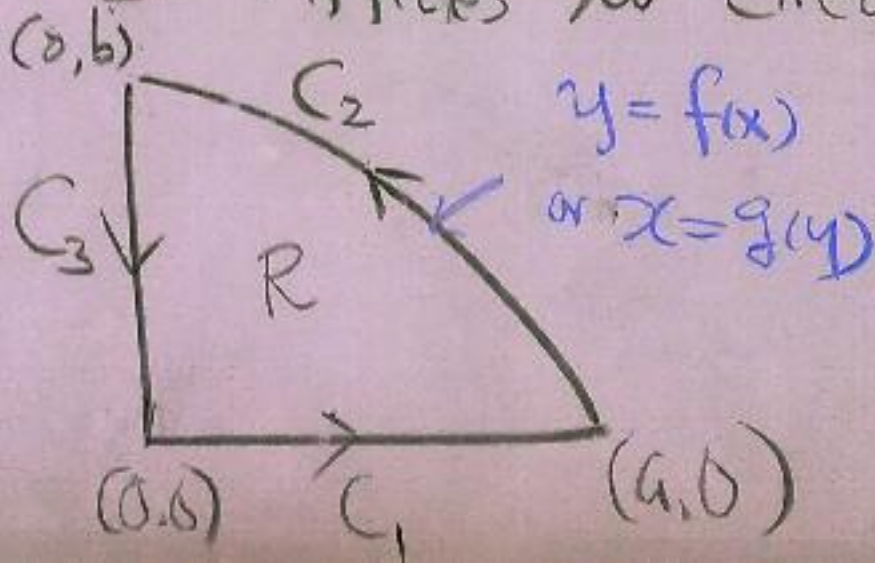 (0,b)
C2
y = f(x)
or x = g(y)
C3
R
(0.0)
C1
(a,0)